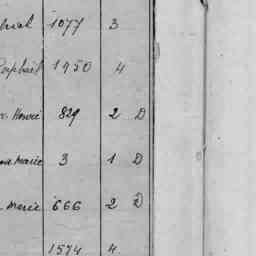 1077 3
Raphaël 1950 4
Henri 829 2 D
Marie 3 1 D
Marie 666 2 D
1574 4